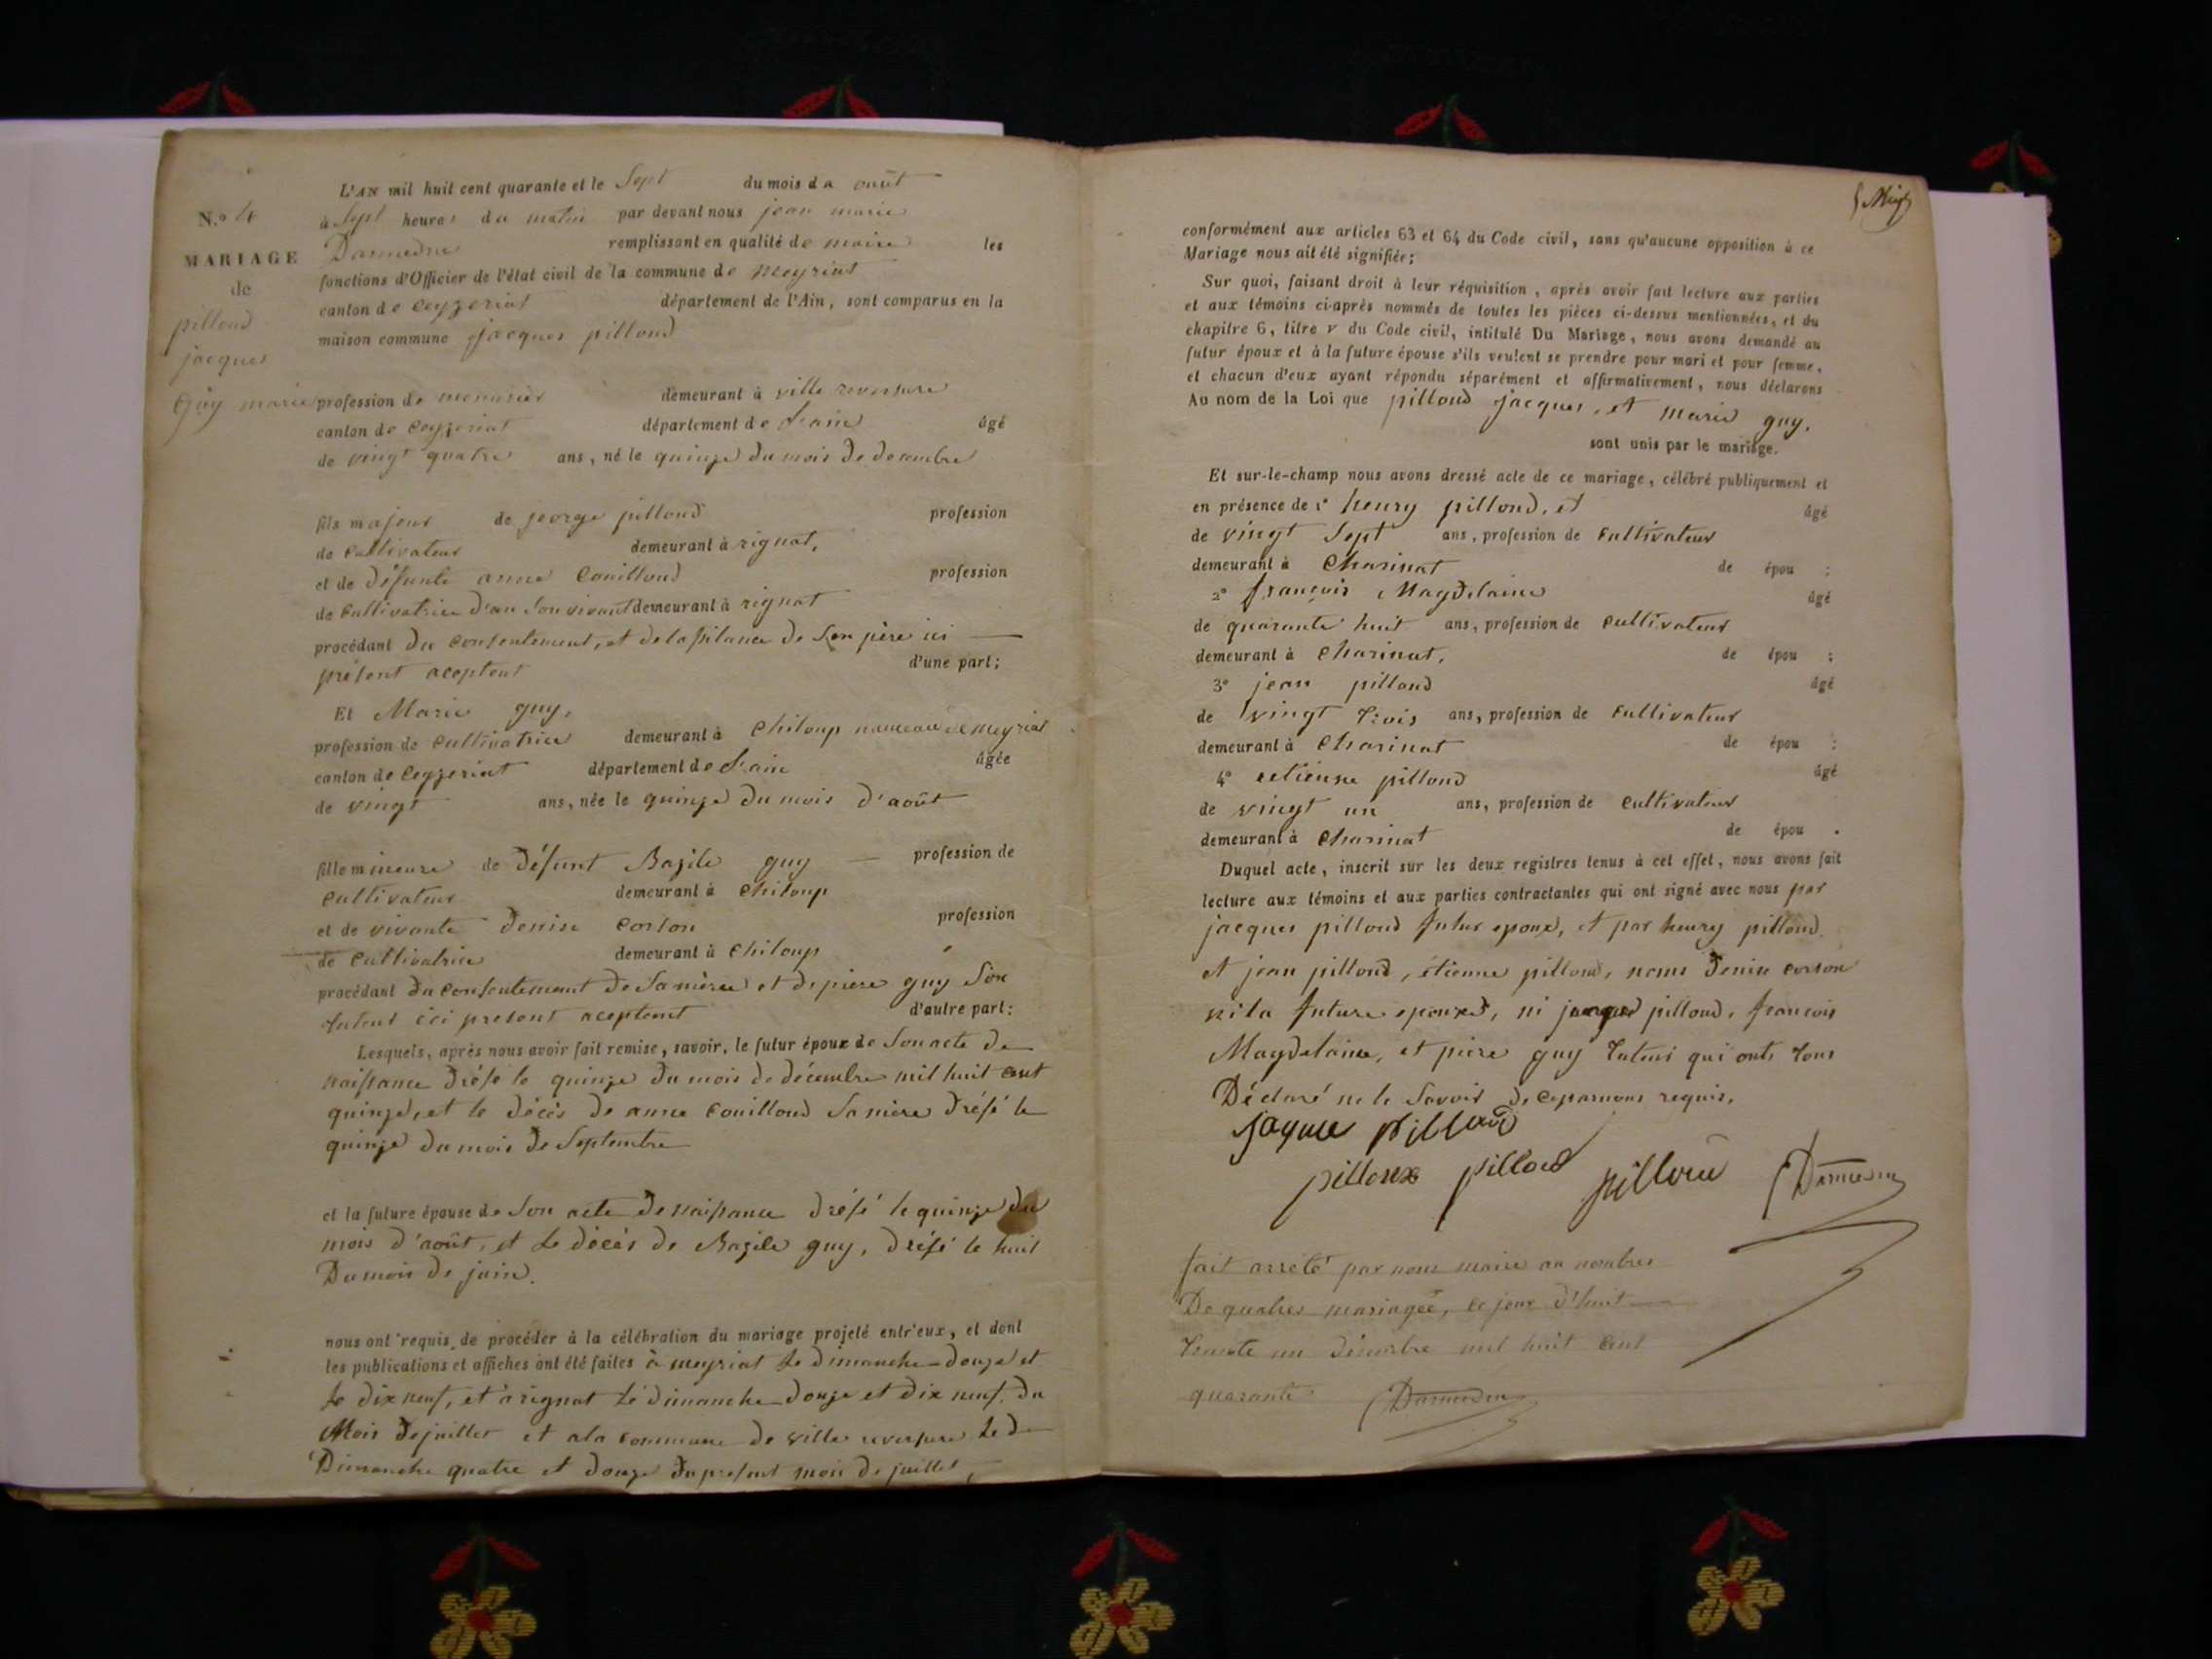 N.º 4
MARIAGE
de
pilloud
jacques
Guy marie
L'AN mil huit cent quarante et le Sept du mois d'a août
à Sept heures du matin par devant nous jean marie
Darmedru remplissant en qualité de maire les
fonctions d'Officier de l'état civil de la commune de meyriat
canton de Ceyzeriat département de l'Ain, sont comparus en la
maison commune jacques pilloud
profession de menusier demeurant à ville reversure
canton de Ceyzeriat département de L'ain âgé
de vingt quatre ans, né le quinze du mois de decembre
fils majeur de jeorge pilloud profession
de Cultivateur demeurant à rignat,
et de défunte anne Couilloud profession
de Cultivatrice d'an son vivant demeurant à rignat
procédant du consentement, et de lassistance de son père ici
présent aceptent d'une part;
Et Marie guy,
profession de Cultivatrice demeurant à Chiloup hameau de meyriat
canton de Ceyzeriat département de L'ain âgée
de vingt ans, née le quinze du mois d'août
fille mineure de défunt Bazile guy profession de
Cultivateur demeurant à Chiloup
et de vivante Denise Corson profession
de Cultivatrice demeurant à Chiloup
procédant du consentement de Sa mère et de piere guy Son
tuteur ici present aceptant d'autre part:
Lesquels, après nous avoir fait remise, savoir, le futur époux de Son acte de
naissance drésé le quinze du mois de décembre mil huit cent
quinze, et le décès de anne Couilloud Sa mère drésé le
quinze du mois de Septembre
et la future épouse de Son acte de naissance drésé le quinze du
mois d'août, et le décès de Bazile guy, drésé le huit
Du mois de juin.
nous ont requis de procéder à la célébration du mariage projeté entr'eux, et dont
les publications et affiches ont été faites à meyriat le dimanche douze et
le dix neuf, et a rignat le dimanche douze et dix neuf du
Mois de juillet et a la commune de ville reversure le
Dimanche quatre et douze du present mois de juillet,
conformément aux articles 63 et 64 du Code civil, sans qu'aucune opposition à ce
Mariage nous ait été signifiée;
Sur quoi, faisant droit à leur réquisition, après avoir fait lecture aux parties
et aux témoins ci-après nommés de toutes les pièces ci-dessus mentionnées, et du
chapitre 6, titre V du Code civil, intitulé Du Mariage, nous avons demandé au
futur époux et à la future épouse s'ils veulent se prendre pour mari et pour femme,
et chacun d'eux ayant répondu séparément et affirmativement, nous déclarons
Au nom de la Loi que pilloud jacques, et marie guy,
sont unis par le mariage.
Et sur-le-champ nous avons dressé acte de ce mariage, célébré publiquement et
en présence de 1º henry pilloud, et âgé
de vingt Sept ans, profession de Cultivateur
demeurant à Charinat de épou ;
2º françois Magdelaine âgé
de quarante huit ans, profession de Cultivateur
demeurant à Charinat, de épou ;
3º jean pilloud âgé
de vingt trois ans, profession de Cultivateur
demeurant à Charinat de épou ;
4º etienne pilloud âgé
de vingt un ans, profession de Cultivateur
demeurant à Charinat de épou .
Duquel acte, inscrit sur les deux registres tenus à cet effet, nous avons fait
lecture aux témoins et aux parties contractantes qui ont signé avec nous par
jacques pilloud futur epoux, et par henry pilloud
et jean pilloud, étienne pilloud, nonis Denise Corson
ni la future epouxe, ni pilloud, françois
Magdelaine, et piere guy tuteur qui onts tous
Déclaré ne le Savoir de ceparnous requis.
jaque pilloud
pilloux pilloud pilloud Darmedru
fait arrêté par nous maire au nombres
De quatres mariages, ce jour d'huit
trante un décembre mil huit cent
quarante Darmedru